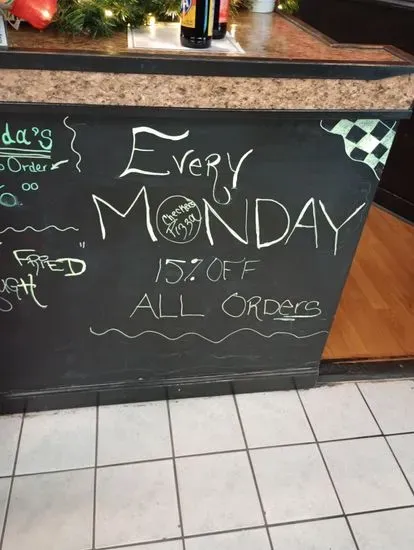 da's
Order
00
FRIED"
Every
MONDAY
Checkers
Pizza
15% OFF
ALL ORDers